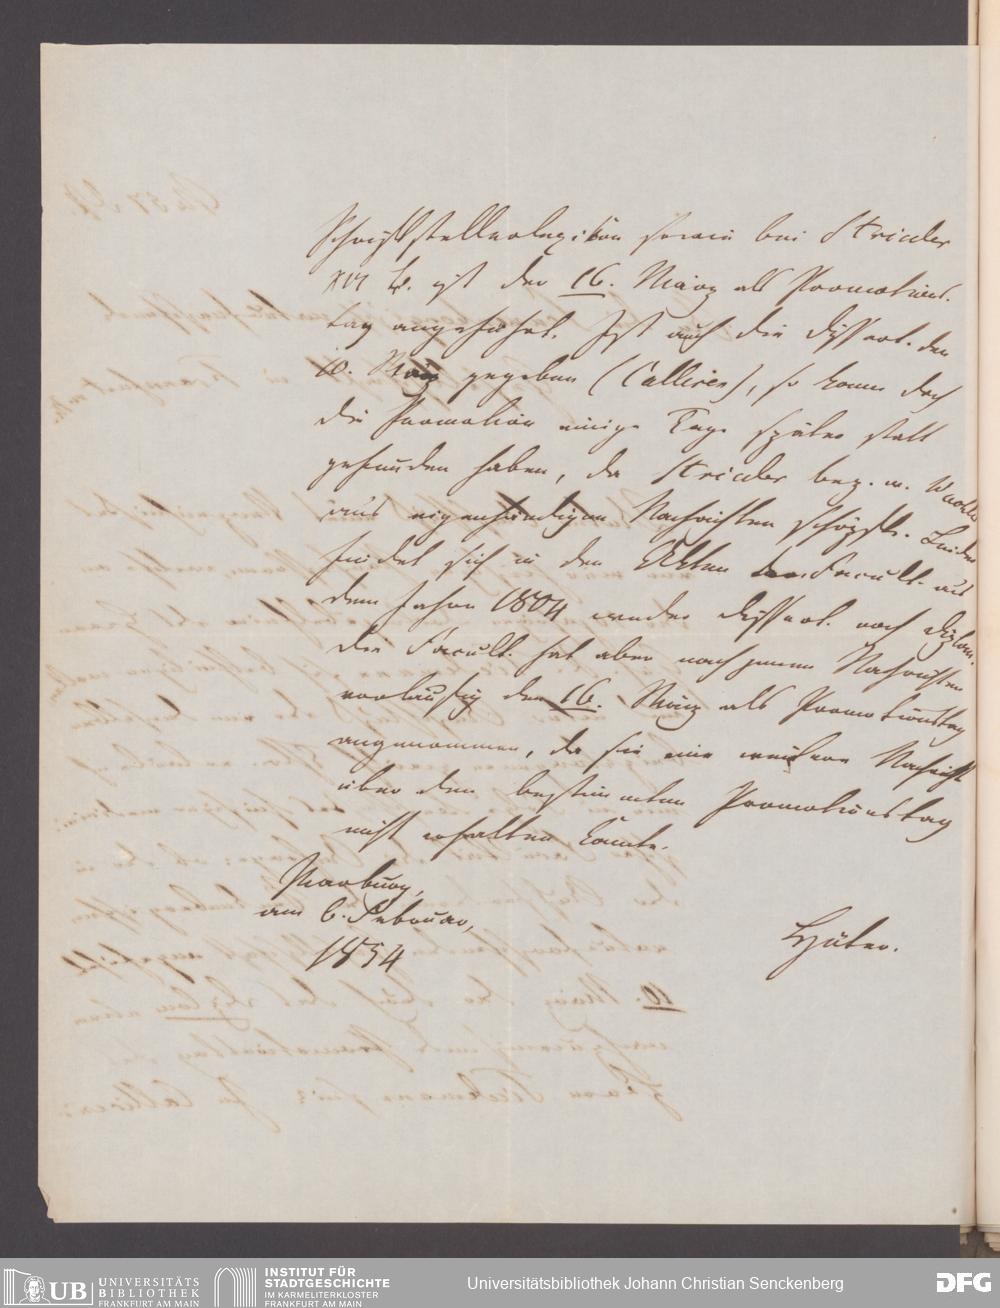 Schriftstellerlexikon sowie bei Stricker
XVI B. ist der 16. März als Promotions-
tag angeführt. Ist auch die Dissert. den
10. März gegeben (Callisen), so kann doch
die Promotion einige Tage später statt
gefunden haben, da Stricker bez. u. Wachler
aus eigenhändigen Nachrichten schöpfte. Leider
findet sich in den Akten der Facult. aus
dem Jahre 1804 weder Dissert. noch Diplom.
Die Facult. hat aber nach jenen Nachrichten
vorläufig den 16. März als Promotionstag
angenommen, da sie eine weitere Nachricht
über den bestimmten Promotionstag
nicht erhalten konnte.
Marburg,
am 6. Februar,
1854
Hüter.
UB UNIVERSITÄTS
BIBLIOTHEK
FRANKFURT AM MAIN
INSTITUT FÜR
STADTGESCHICHTE
IM KARMELITERKLOSTER
FRANKFURT AM MAIN
Universitätsbibliothek Johann Christian Senckenberg
DFG